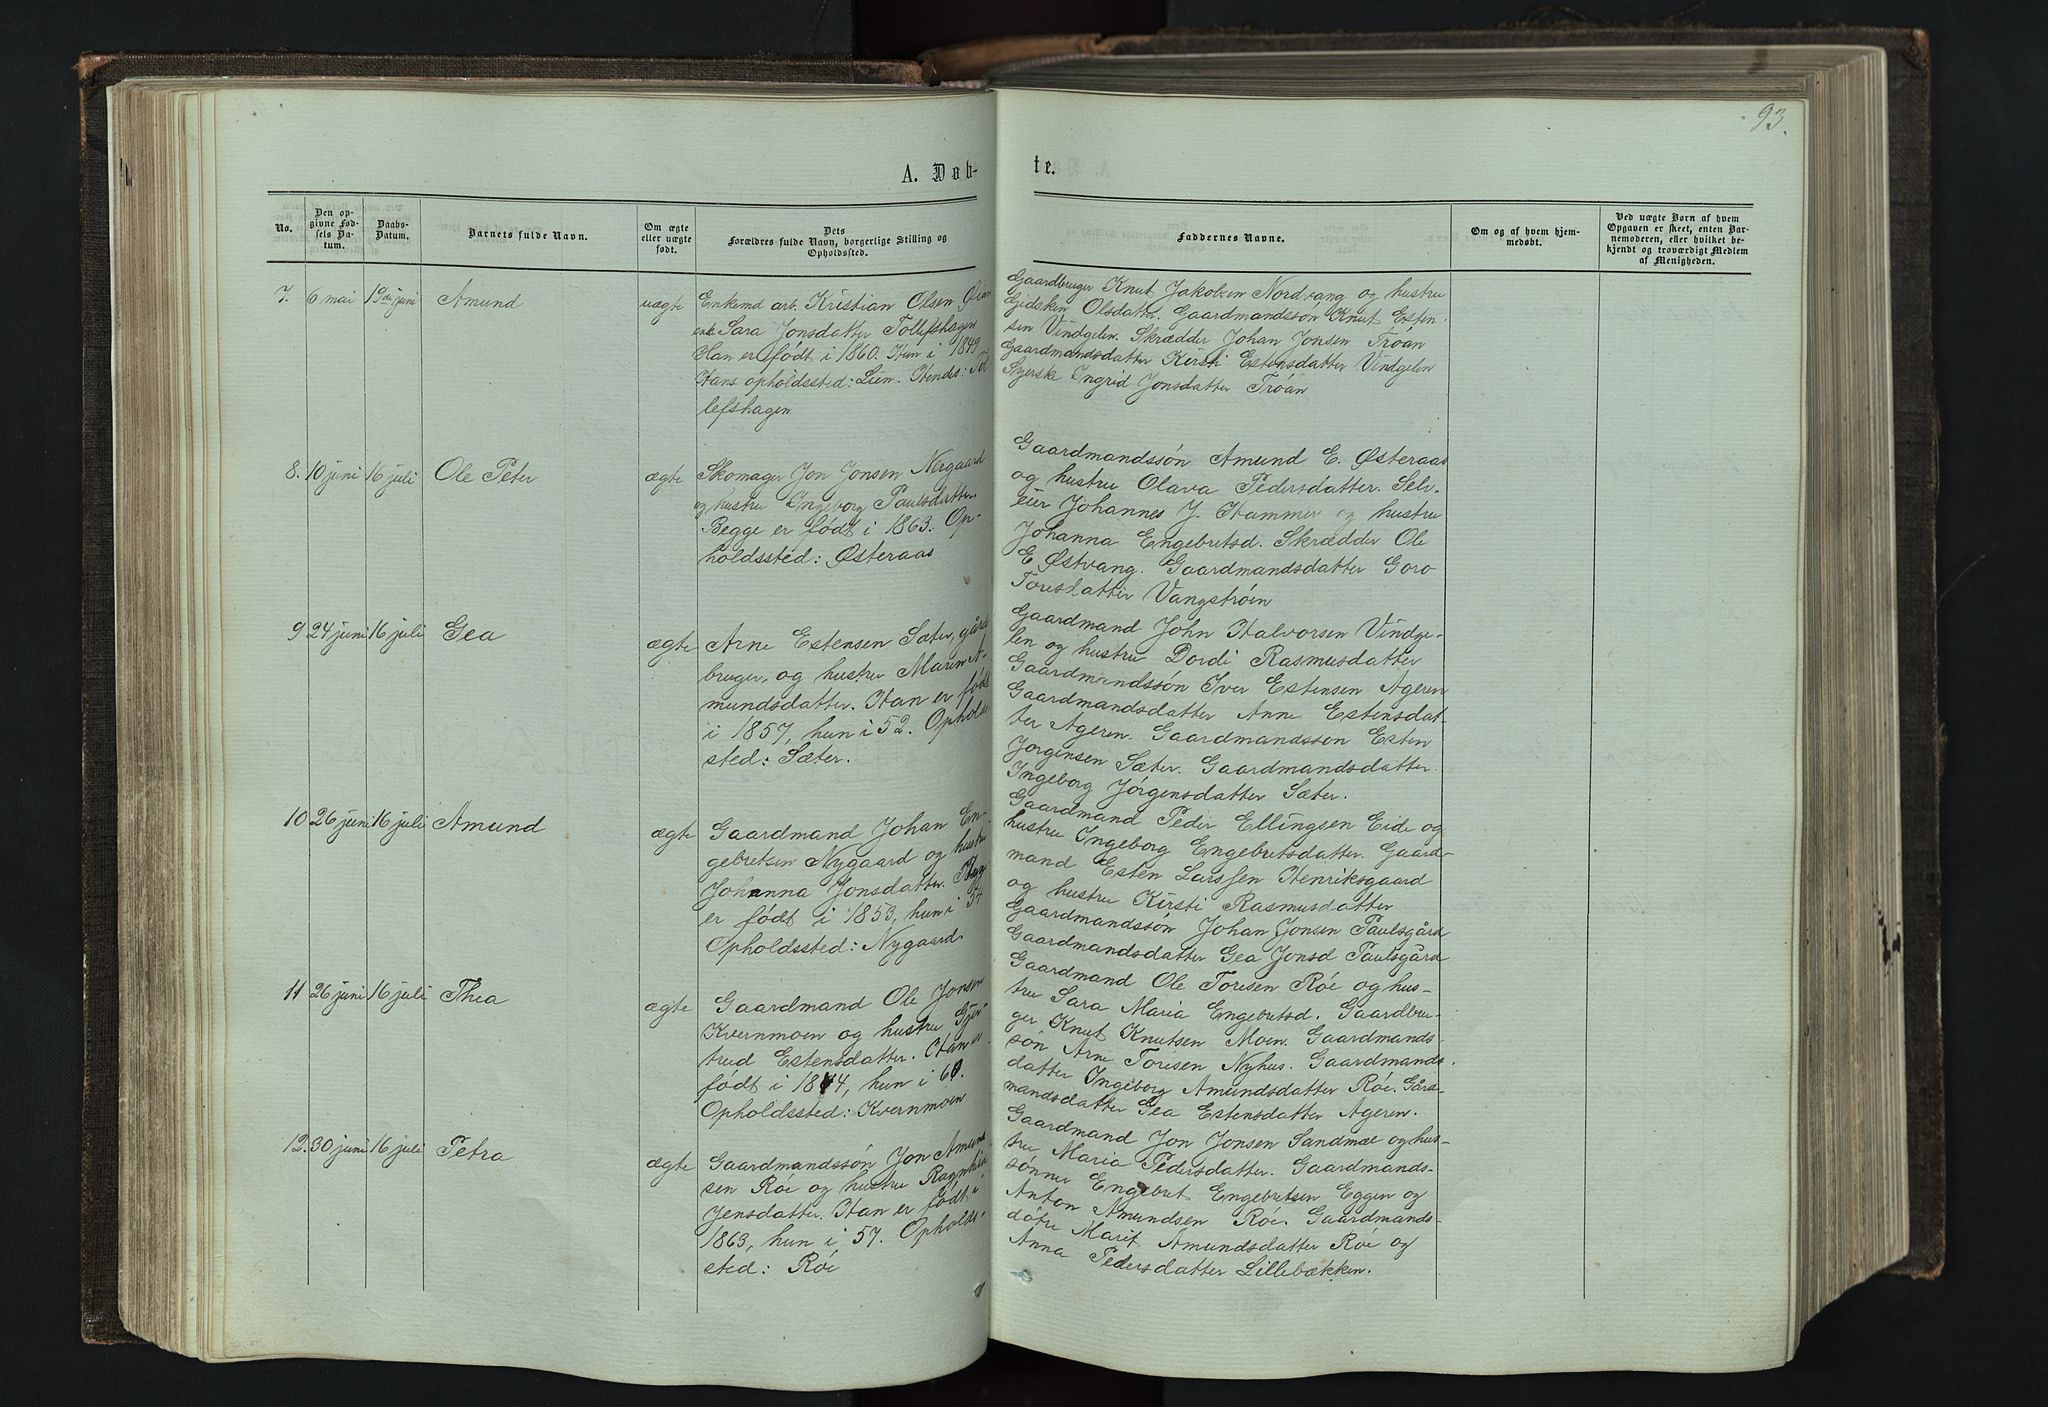 93.
A. Døb-
te.
No.
Den op-
givne Fød-
sels Da-
tum.
Daabs-
Datum.
Barnets fulde Navn.
Om ægte
eller uægte
født.
Dets
Forældres fulde Navn, borgerlige Stilling og
Opholdssted.
Faddernes Navne.
Om og af hvem hjem-
medøbt.
Ved uægte Børn af hvem
Opgaven er skeet, enten Bar-
nemoderen, eller hvilket be-
kjendt og troværdigt Medlem
af Menigheden.
7. 6 mai juni Amund uægte
Enkemd arb. Kristian Olsen
Sara Jonsdatter Tollefshagen
Han er født i 1860. Hun i 1849
Hans opholdssted: Lien. Hendes: Tol
lefshagen
Gaardbruger Knut Jakobsen Nordvang og hustru
Gidsken Olsdatter. Gaardmandssøn Knut Esten-
sen Vindgelen. Skrædder Johan Jonsen Trøan
Gaardmandsdatter Kirsti Estensdatter Vindgelen
Syerske Ingrid Jonsdatter Trøan
8. 10 juni 16 juli Ole Peter ægte
Skomager Jon Jonsen Nergaard
og hustru Ingeborg Paulsdatter.
Begge er født i 1863. Op-
holdssted: Østeraas
Gaardmandssøn Amund E. Østeraas
og hustru Olava Pedersdatter. Selv-
eier Johannes J. Hammer og hustru
Johanna Engebretsd. Skrædder Ole
E Østvang. Gaardmandsdatter Goro
Toresdatter Vangstrøen
9 24 juni 16 juli Gea ægte
Arne Estensen Sæter, gård
bruger, og hustru Maren A-
mundsdatter. Han er født
i 1857, hun i 52. Opholds
sted: Sæter.
Gaardmand John Halvorsen Vindge-
len og hustru Dordi Rasmusdatter
Gaardmandssøn Iver Estensen Ageren
Gaardmandsdatter Anne Estensdat-
ter Ageren. Gaardmandssøn Esten
Jørgensen Sæter. Gaardmandsdatter
Ingeborg Jørgensdatter Sæter.
10 26 juni 16 juli Amund ægte
Gaardmand Johan En-
gebretsen Nygaard og hustru
Johanna Jonsdatter.
er født i 1853, hun i 54
Opholdssted: Nygaard.
Gaardmand Peder Ellingsen Eide og
hustru Ingeborg Engebretsdatter. Gaard-
mand Esten Larssen Henriksgaard
og hustru Kirsti Rasmusdatter
Gaardmandssøn Johan Jonsen Paulsgård
Gaardmandsdatter Gea Jonsd Paulsgård
11 26 juni 16 juli Thea ægte
Gaardmand Ole Jonsen
Kvernmoen og hustru Gjer-
trud Estensdatter. Han er
født i 1844, hun i 60.
Opholdssted: Kvernmoen
Gaardmand Ole Toresen Røe og hus-
tru Sara Maria Engebretsd. Gaardbru-
ger Knut Knutsen Moen. Gaardmands-
søn Arne Toresen Nyhus. Gaardmands-
datter Ingeborg Amundsdatter Røe. Gård-
mandsdatter Gea Estensdatter Ageren.
12. 30 juni 16 juli Petra ægte
Gaardmandssøn Jon Amund
sen Røe og hustru Ragnhild
Jensdatter. Han er født i
1863, hun i 57. Opholds-
sted: Røe
Gaardmand Jon Jonsen Sandmæl og hus-
tru Maria Pedersdatter. Gaardmands-
sønner Engebret Engebretsen Eggen og
Anton Amundsen Røe. Gaardmands-
døtre Marit Amundsdatter Røe og
Anna Pedersdatter Lillebækken.